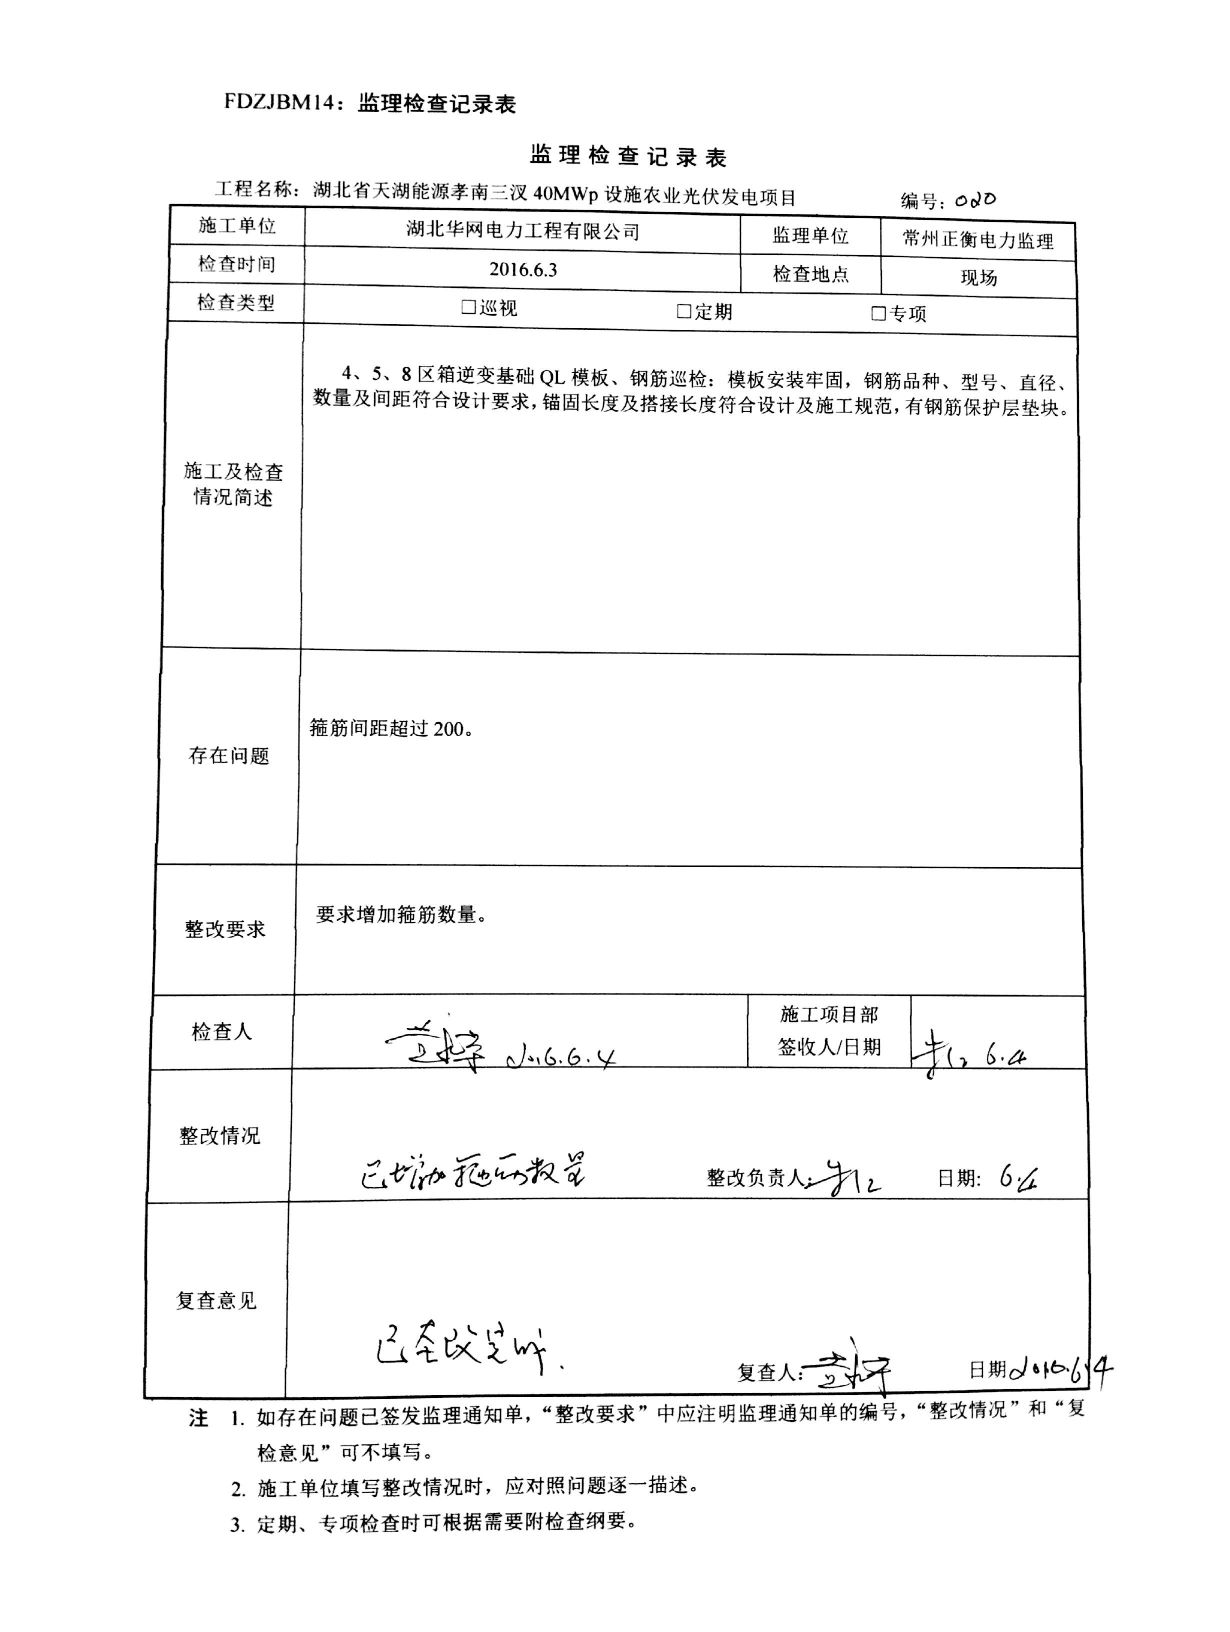 FDZJBM14：监理检查记录表
监理检查记录表
工程名称：湖北省天湖能源孝南三汊 40MWp 设施农业光伏发电项目 编号：020
施工单位 湖北华网电力工程有限公司 监理单位 常州正衡电力监理
检查时间 2016.6.3 检查地点 现场
检查类型 □巡视 □定期 □专项
4、5、8 区箱逆变基础 QL 模板、钢筋巡检：模板安装牢固，钢筋品种、型号、直径、
数量及间距符合设计要求，锚固长度及搭接长度符合设计及施工规范，有钢筋保护层垫块。
施工及检查
情况简述
箍筋间距超过 200。
存在问题
要求增加箍筋数量。
整改要求
施工项目部
检查人 2016.6.4 签收人/日期 6.4
整改情况
已增加箍筋数量 整改负责人： 日期: 6.4
复查意见
已整改完毕. 复查人: 日期 2016.6.4
注 1. 如存在问题已签发监理通知单，“整改要求”中应注明监理通知单的编号，“整改情况”和“复
检意见”可不填写。
2. 施工单位填写整改情况时，应对照问题逐一描述。
3. 定期、专项检查时可根据需要附检查纲要。